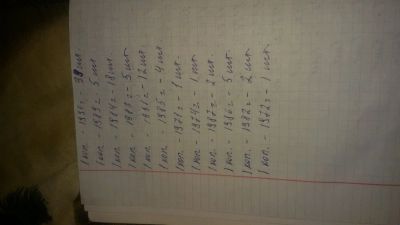 1 коп. - шт.
1 коп. - 1989г. - 5 шт.
1 коп. - 1984г. - 18 шт.
1 коп. - 5 шт.
1 коп. - 1981г. - 12 шт.
1 коп. - 1985г. - 4 шт.
1 коп. - 1971г. - 1 шт.
1 коп. - 1974г. - 1 шт.
1 коп. - 1987г. - 2 шт.
1 коп. - 1986г. - 5 шт.
1 коп. - 1982г. - 2 шт.
1 коп. - 1972г. - 1 шт.